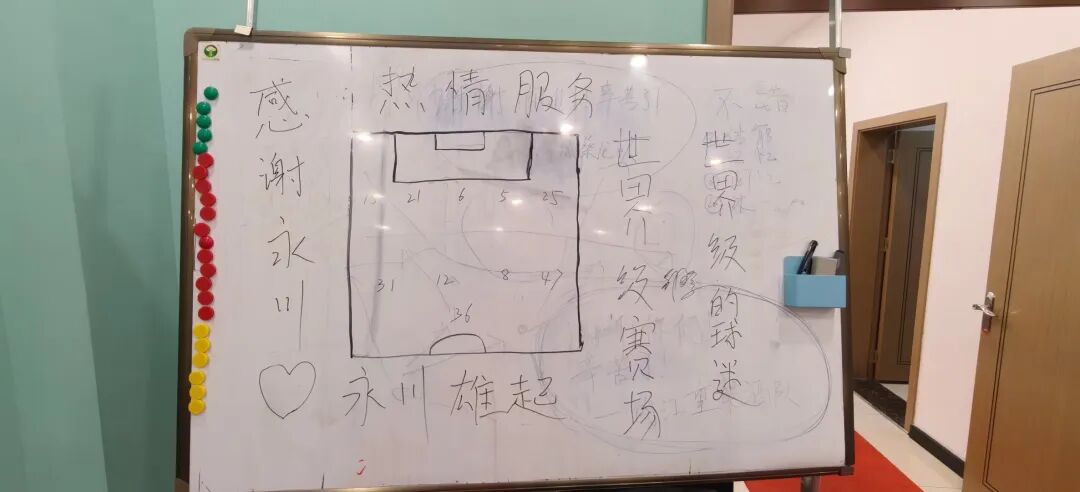 感谢永川
热情服务
21 6 5 25
31 12 8 47
36
永川雄起
世界级赛场
世界级的球迷